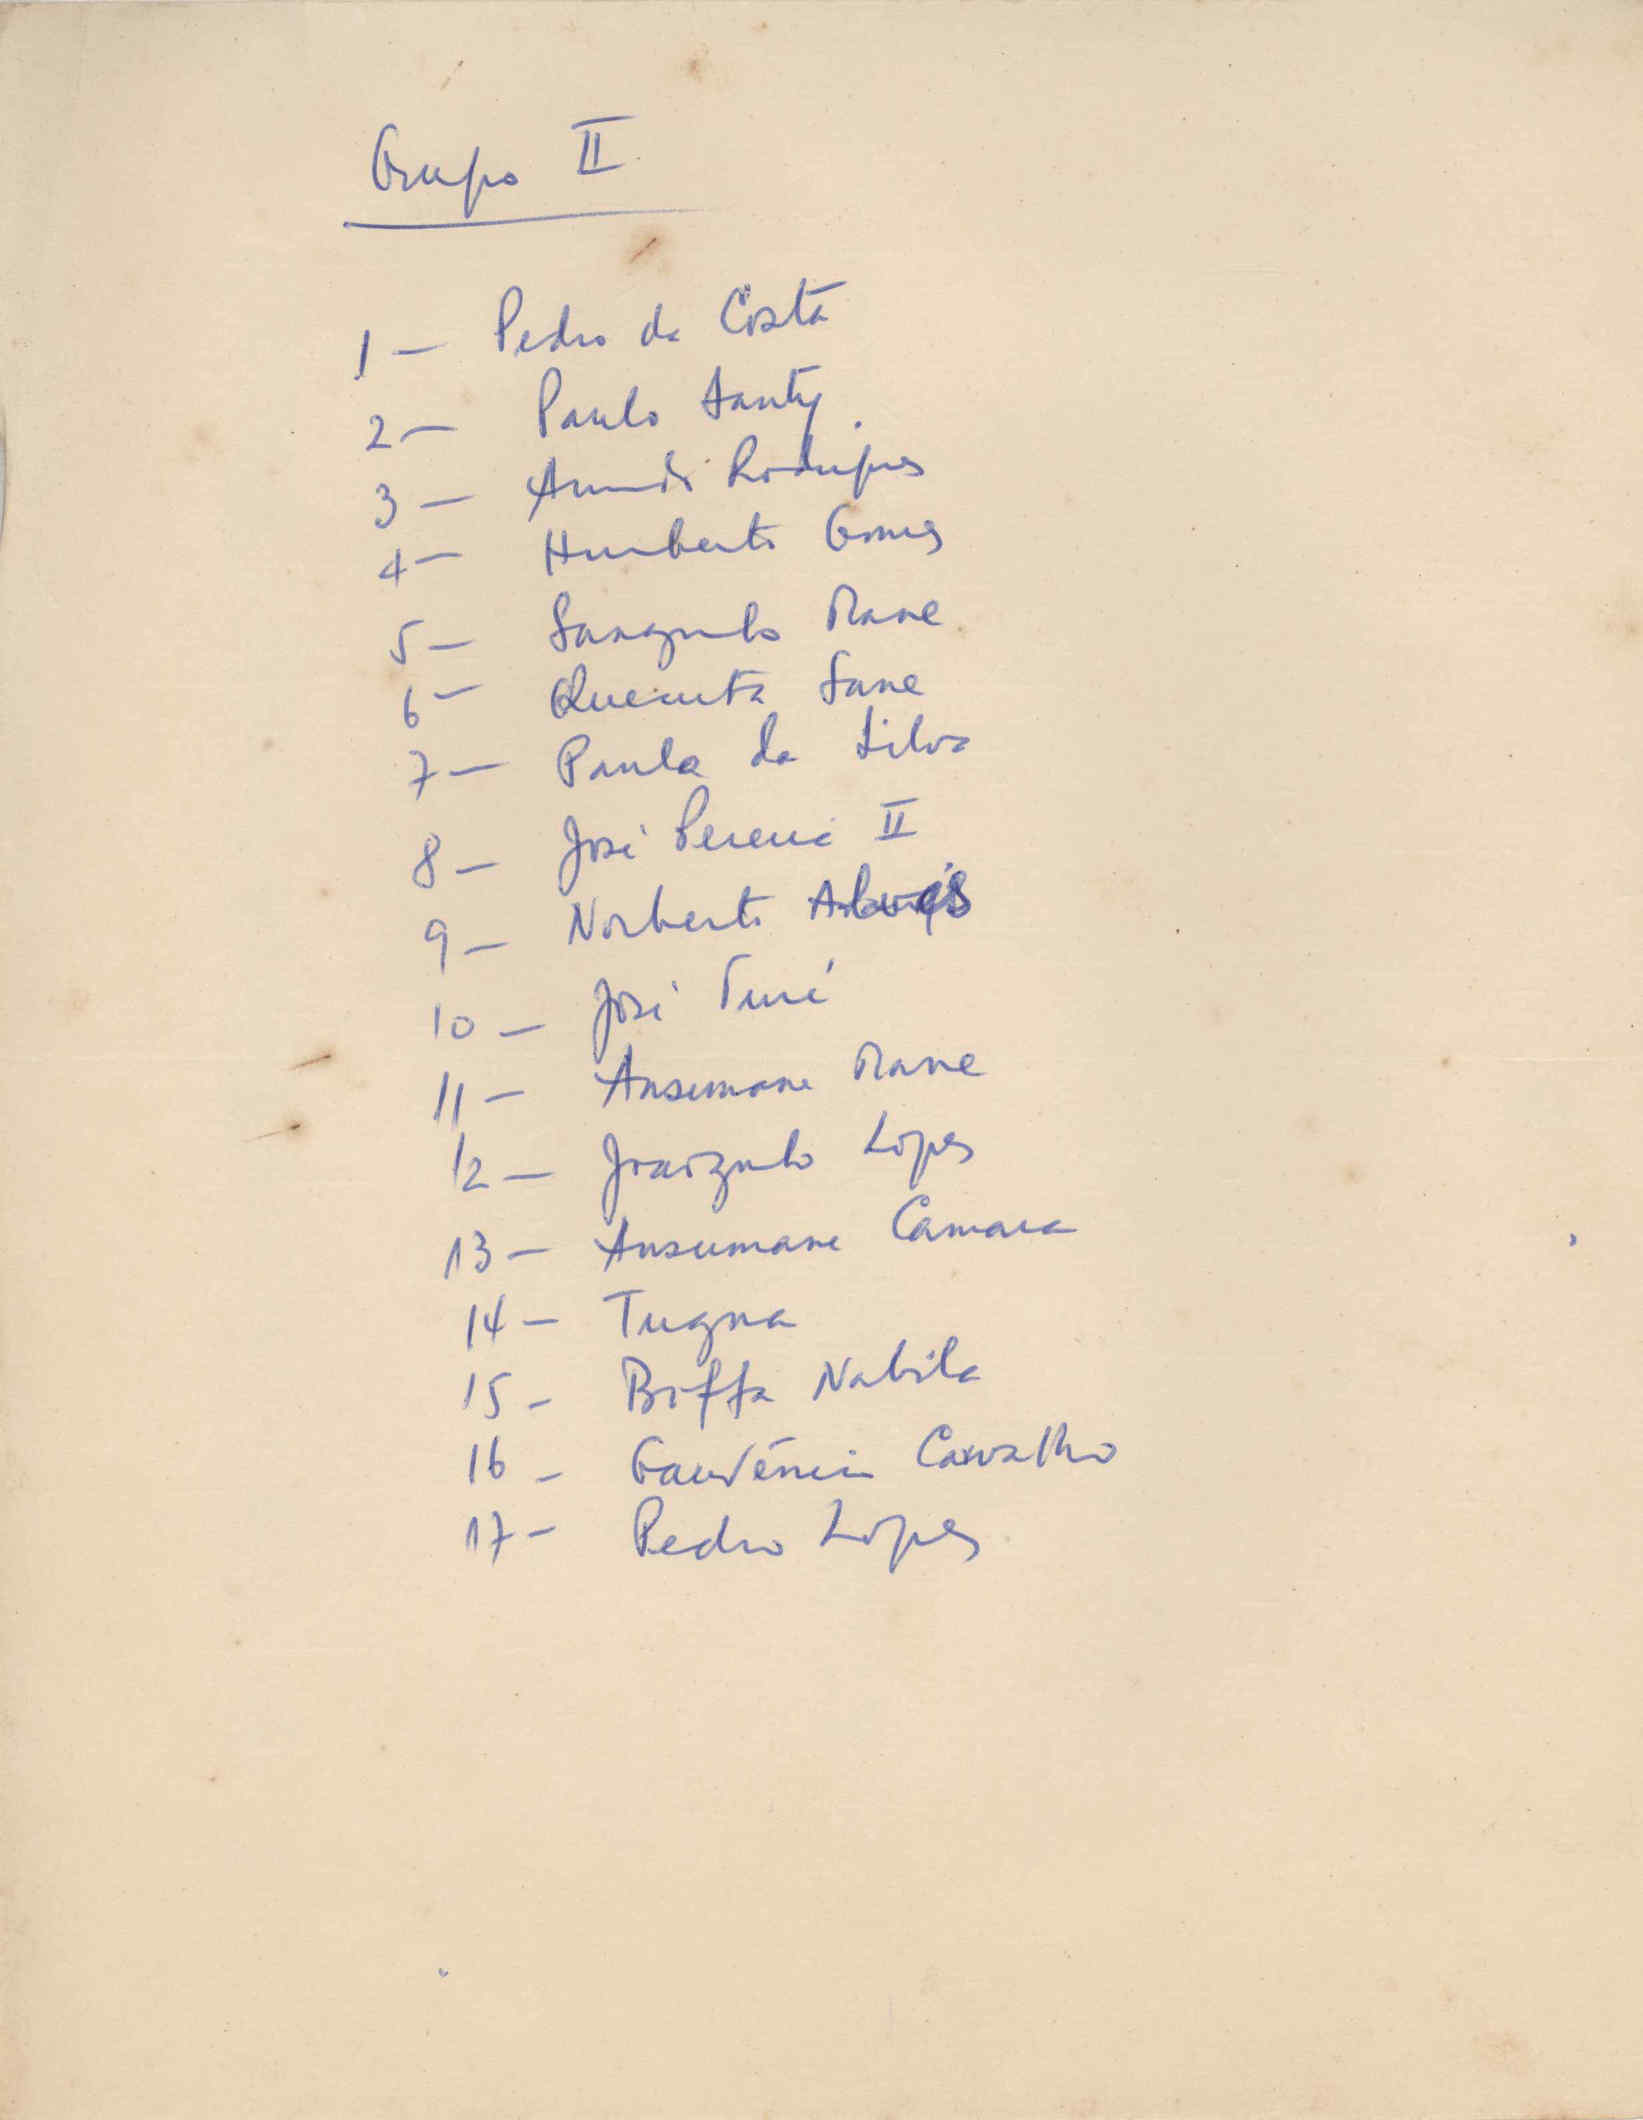 Grupo II
1 — Pedro da Costa
2 — Paulo Santy
3 — Armando Rodrigues
4 — Humberto Gomes
5 — Mane
6 — Quecuta Sane
7 — Paula da Silva
8 — José Pereira II
9 — Norberto Alves
10 — José Turé
11 — Ansumane Mane
12 — Joaozinho Lopes
13 — Ansumane Camara
14 — Tugna
15 — Boffa Nabila
16 — Gaudêncio Carvalho
17 — Pedro Lopes